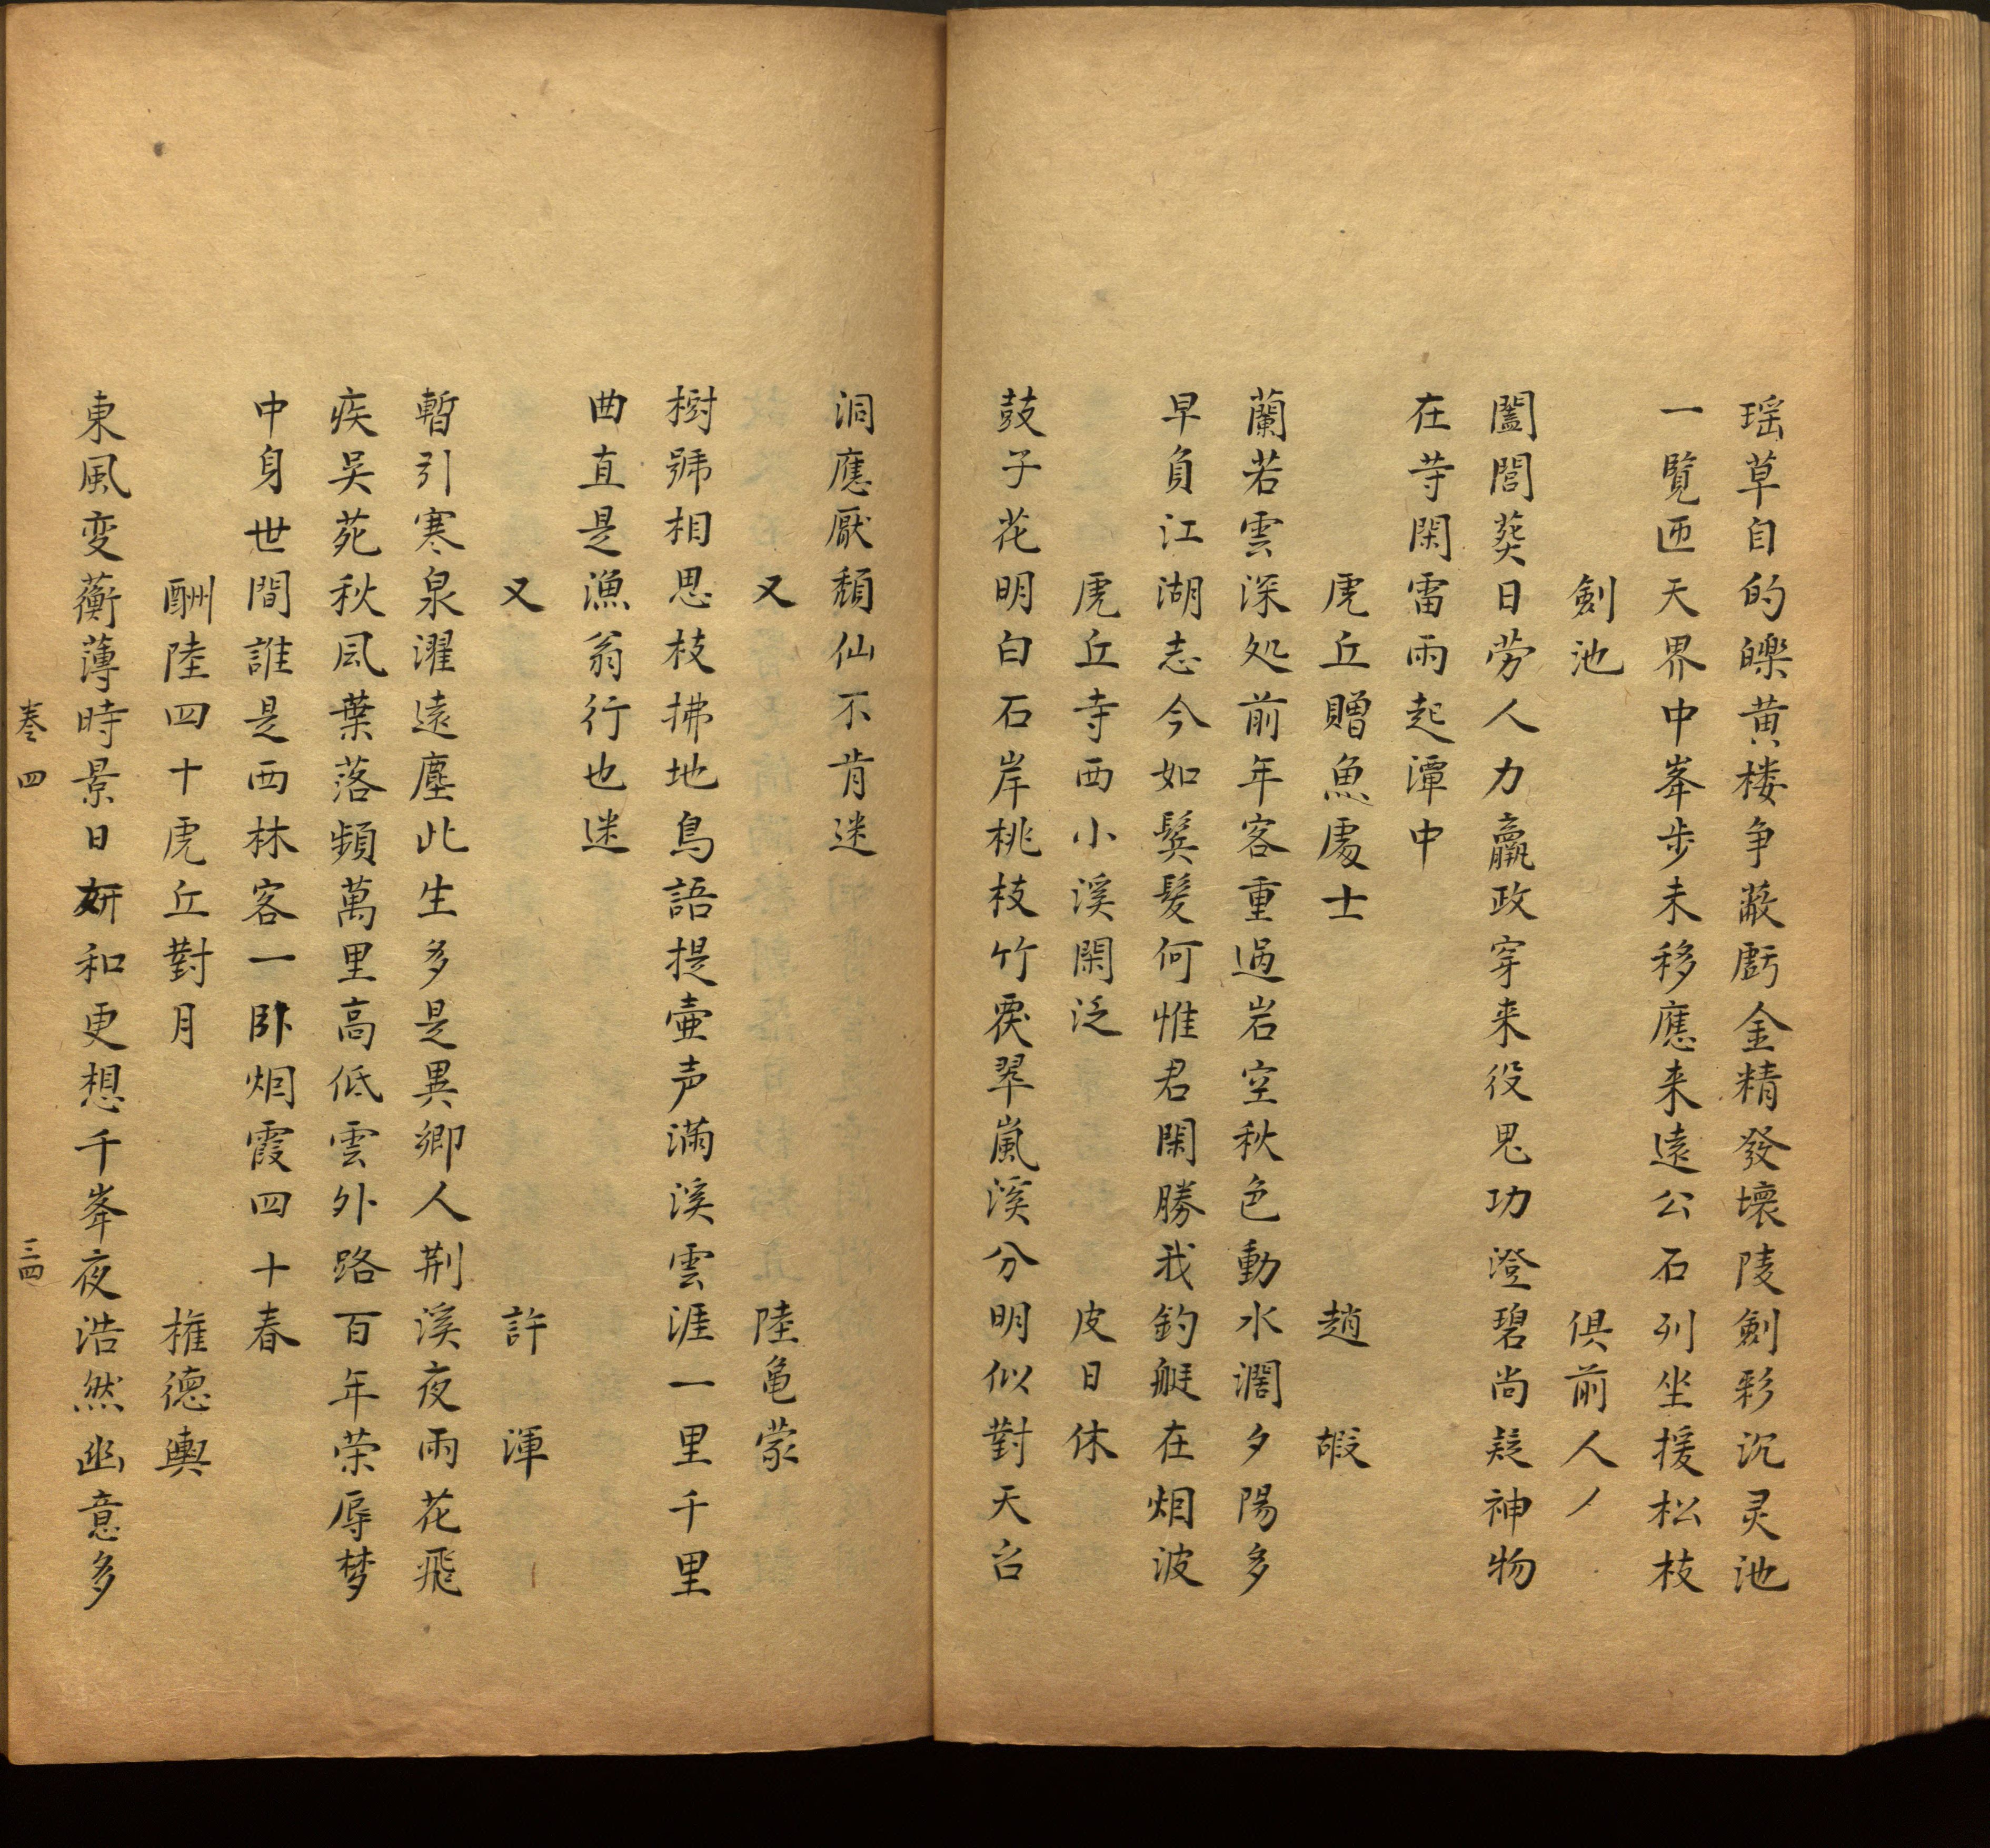 瑶草自的皪黄楼争蔽虧金精發壞陵劍彩沉灵池
一覧迊天界中峯步未移應来遠公石列坐援松枝
劍池 俱前人丿
闔閭葵日劳人力贏政穿来役鬼功澄碧尚疑神物
在䒭閑雷雨起潭中
虎丘贈魚處士 趙嘏
蘭若雲深処前年客重過岩空秋色動水濶夕陽多
早負江湖志今如鬢髮何惟君閑勝我釣艇在烟波
虎丘寺西小溪閑泛 皮日休
鼓子花明白石岸桃枝竹覆翠嵐溪分明似對天台
洞應厭頹仙不肯迷
又 陸龟蒙
樹號相思枝拂地鳥語提壷声滿溪雲涯一里千里
曲直是漁翁行也迷
又 許渾
暫引寒泉濯遠塵此生多是異鄉人荆溪夜雨花飛
疾吴苑秋風葉落頻萬里高低雲外路百年荣辱梦
中身世間誰是西林客一卧烟霞四十春
酬陸四十虎丘對月 權德輿
東風变蘅薄時景日妍和更想千峯夜浩然幽意多
卷四 三四